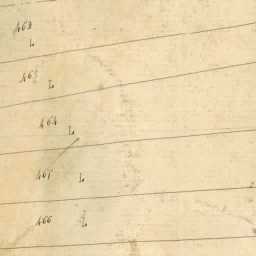 462
L
463
L
464
L
465 L
466
L